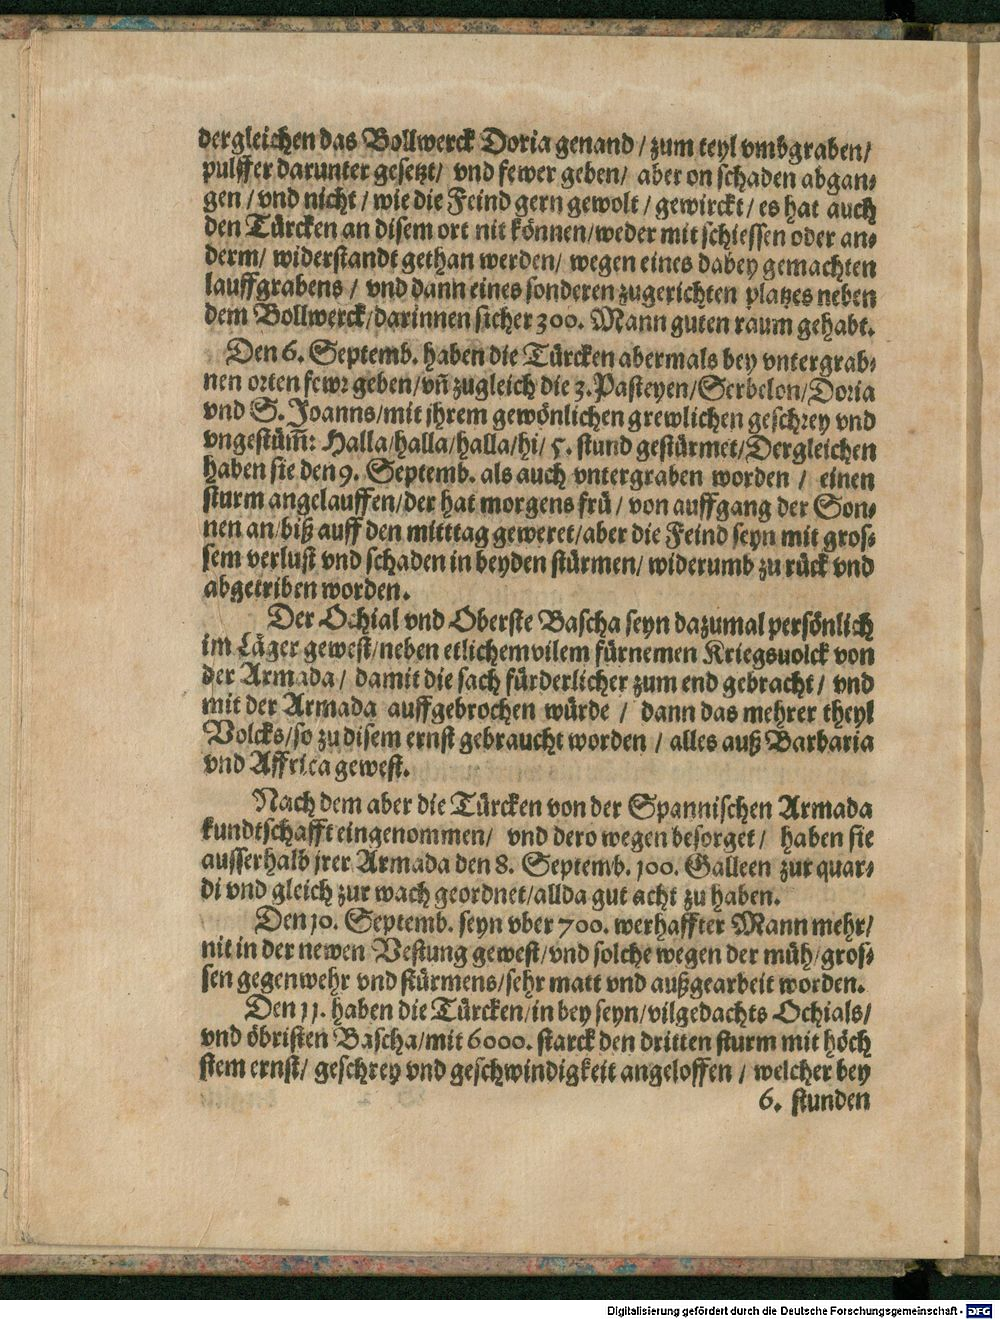 dergleichen das Bollwerck Doria genand / zum teyl vmbgraben/
pulffer darunter gesetzt/ vnd fewer geben/ aber on schaden abgan⸗
gen / vnd nicht / wie die Feind gern gewolt / gewirckt / es hat auch
den Türcken an disem ort nit können/weder mit schiessen oder an⸗
derm/ widerstandt gethan werden/ wegen eines dabey gemachten
lauffgrabens / vnd dann eines sonderen zugerichten platzes neben
dem Bollwerck/darinnen sicher 300. Mann guten raum gehabt.
Den 6. Septemb. haben die Türcken abermals bey vntergrab⸗
nen orten fewr geben/vñ zugleich die 3. Pasteyen/Serbelon/Doria
vnd S. Joanns/mit jhrem gewönlichen grewlichen geschrey vnd
vngestüm̃: Halla/halla/halla/hi/ 5. stund gestürmet/Dergleichen
haben sie den 9. Septemb. als auch vntergraben worden / einen
sturm angelauffen/der hat morgens frü / von auffgang der Son⸗
nen an/biß auff den mitttag geweret/aber die Feind seyn mit gros⸗
sem verlust vnd schaden in beyden stürmen/ widerumb zu rück vnd
abgetriben worden.
Der Ochial vnd Oberste Bascha seyn dazumal persönlich
im Läger gewest/neben etlichem vilem fürnemen Kriegsuolck von
der Armada / damit die sach fürderlicher zum end gebracht / vnd
mit der Armada auffgebrochen würde / dann das mehrer theyl
Volcks/so zu disem ernst gebraucht worden / alles auß Barbaria
vnd Affrica gewest.
Nach dem aber die Türcken von der Spannischen Armada
kundtschafft eingenommen/ vnd dero wegen besorget / haben sie
ausserhalb jrer Armada den 8. Septemb. 100. Galleen zur quar⸗
di vnd gleich zur wach geordnet/allda gut acht zu haben.
Den 10. Septemb. seyn vber 700. werhaffter Mann mehr/
nit in der newen Vestung gewest/vnd solche wegen der müh/gros⸗
sen gegenwehr vnd stürmens/sehr matt vnd außgearbeit worden.
Den 11. haben die Türcken/in bey seyn/vilgedachts Ochials/
vnd öbristen Bascha/mit 6000. starck den dritten sturm mit höch
stem ernst/ geschrey vnd geschwindigkeit angeloffen / welcher bey
6. stunden
Digitalisierung gefördert durch die Deutsche Forschungsgemeinschaft - DFG